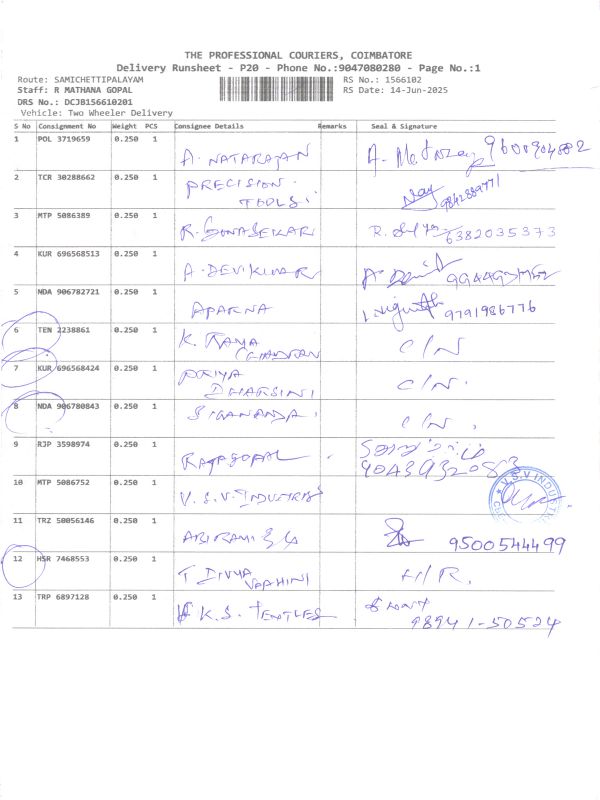 THE PROFESSIONAL COURIERS, COIMBATORE
Delivery Runsheet - P20 - Phone No.:9047080280 - Page No.:1
Route: SAMICHETTIPALAYAM RS No.: 1566102
Staff: R MATHANA GOPAL RS Date: 14-Jun-2025
DRS No.: DCJB156610201
Vehicle: Two Wheeler Delivery
S No Consignment No Weight PCS Consignee Details Remarks Seal & Signature
1 POL 3719659 0.250 1 A. NATARAJAN
2 TCR 30288662 0.250 1 PRECISION. 9842889771
TOOLS.
3 MTP 5086389 0.250 1 R. 6382035373
4 KUR 696568513 0.250 1 A. DEVIKUMAR
5 NDA 906782721 0.250 1 APARNA 9791986776
6 TEN 2238861 0.250 1 K. RAMA C/N
CHANDRAN
7 KUR 696568424 0.250 1 PRIYA C/N.
DHARSINI
8 NDA 906780843 0.250 1 SIGANANDA. C/N.
9 RJP 3598974 0.250 1 RAJAGOPAL
10 MTP 5086752 0.250 1 V.S.V. INDUSTRIES V.S.V INDUST
11 TRZ 50056146 0.250 1 ABIRAMI & Co 9500544499
12 HSR 7468553 0.250 1 T DIVYA H/R.
VAAHINI
13 TRP 6897128 0.250 1 K.S. TEXTILES
98941-50524